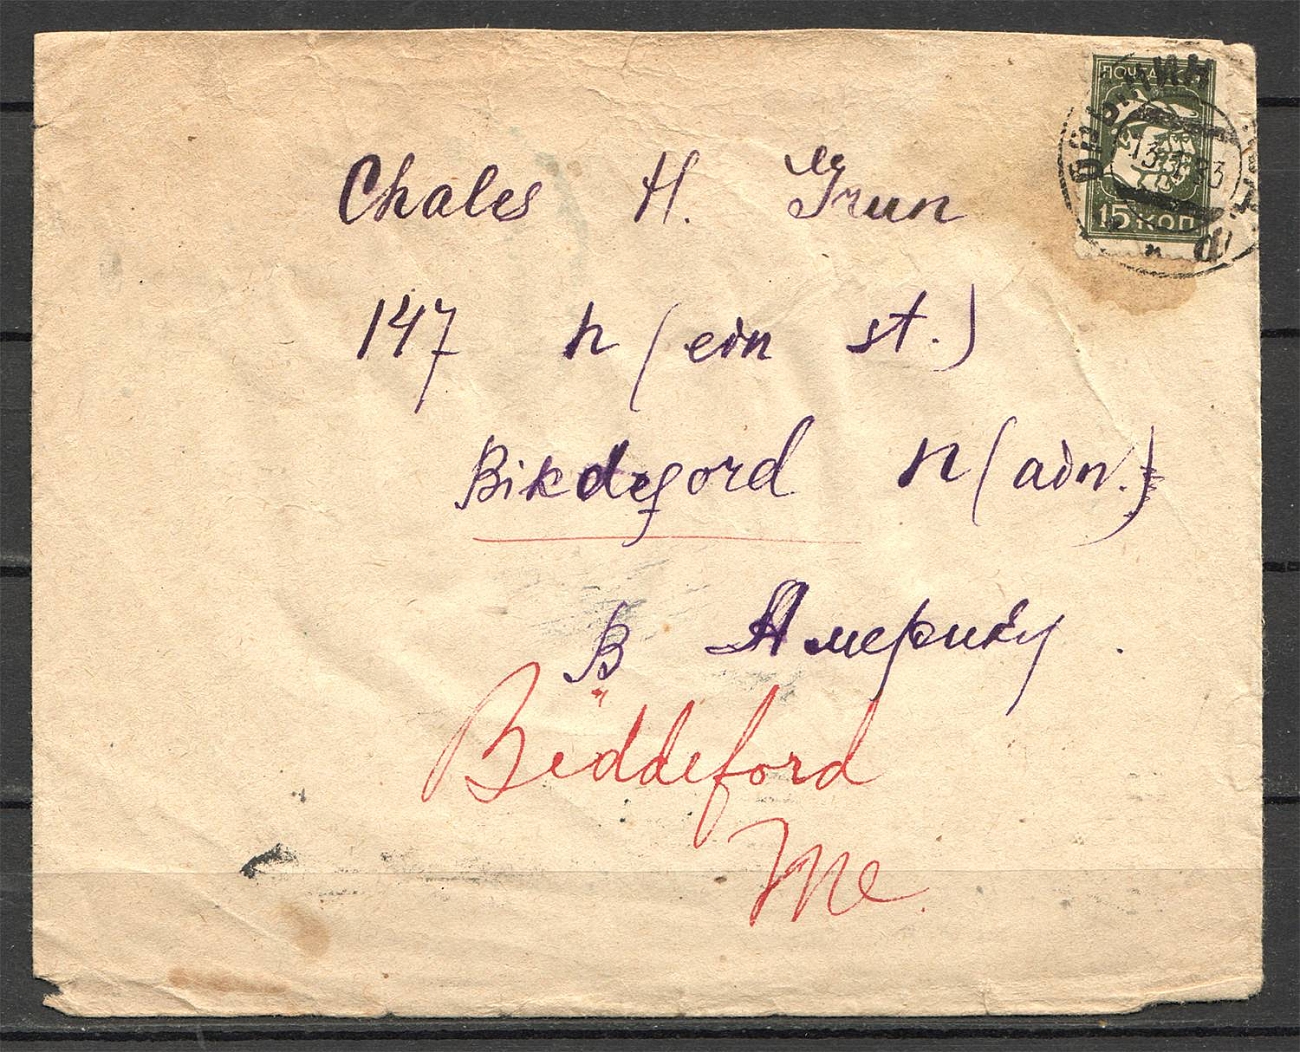 ПОЧТА
15 КОП
Chales H. Grun
147 n (ein st.)
Bikdeford n (ain.)
В Америку.
Biddeford
Me.